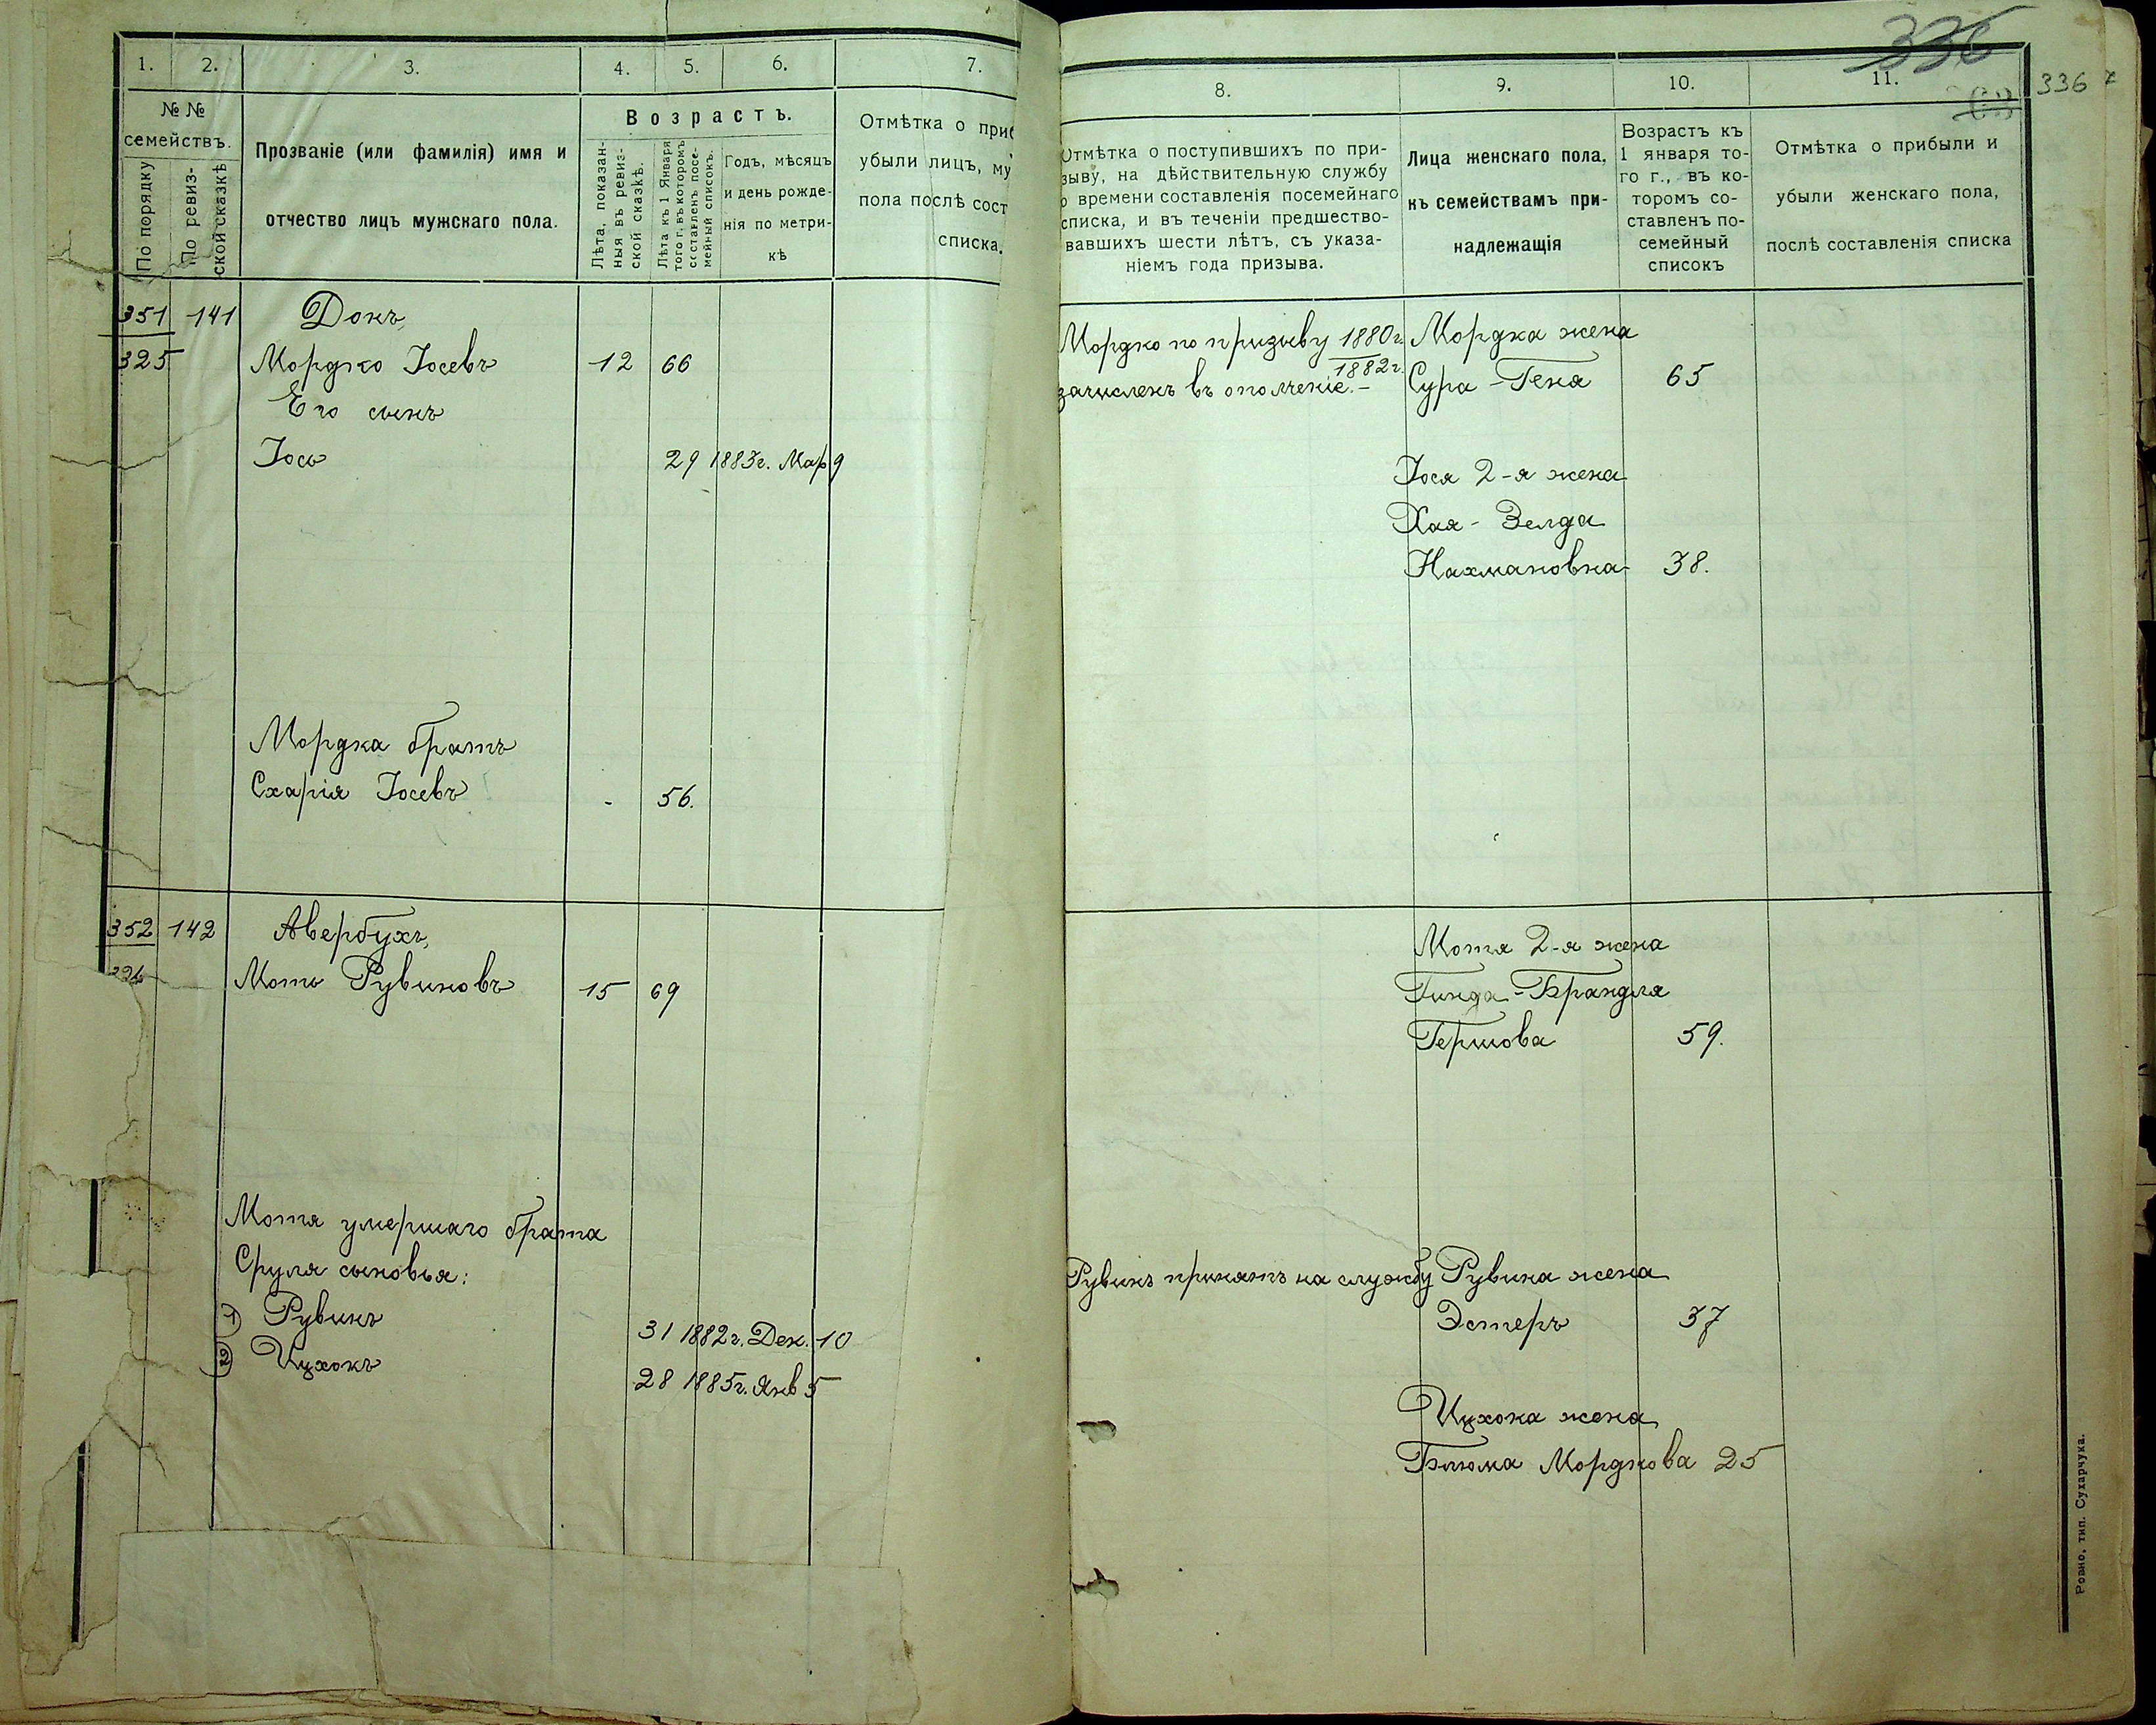 1. 2. 3. 4. 5. 6. 7.
№ № семействъ.
По порядку
По ревизской сказкѣ
Прозваніе (или фамилія) имя и
отчество лицъ мужскаго пола.
Возрастъ.
Лѣта, показан-
ныя въ ревиз-
ской сказкѣ.
Лѣта къ 1 Января
того г. въ которомъ
составленъ посе-
мейный списокъ.
Годъ, мѣсяцъ
и день рожде-
нія по метри-
кѣ
Отмѣтка о при
убыли лицъ, му
пола послѣ сост
списка.
351 141 Докъ,
325 Мордко Іосевъ 12 66
Его сынъ
Іось 29 1883г. Мар 9
Мордка братъ
Схарія Іосевъ - 56.
352 142 Авербухъ,
326 Моть Рувиновъ 15 69
Мотя умершаго брата
Сруля сыновья:
1) Рувинъ 31 1882г. Дек. 10
2) Ицхокъ 28 1885г. Янв 5
336
336
8. 9. 10. 11.
Отмѣтка о поступившихъ по при-
зыву, на дѣйствительную службу
о времени составленія посемейнаго
списка, и въ теченіи предшество-
вавшихъ шести лѣтъ, съ указа-
ніемъ года призыва.
Лица женскаго пола,
къ семействамъ при-
надлежащія
Возрастъ къ
1 января то-
го г., въ ко-
торомъ со-
ставленъ по-
семейный
списокъ
Отмѣтка о прибыли и
убыли женскаго пола,
послѣ составленія списка
Мордко по призыву 1880г. Мордка жена
1882г.
зачисленъ въ ополченіе.- Сура-Геня 65
Іося 2-я жена
Хая-Зелда
Нахмановна- 38.
Мотя 2-я жена
Гинда-Брандля
Гершова 59.
Рувинъ принятъ на службу Рувина жена
Эстеръ 37
Ицхока жена
Блюма Мордкова 25
Ровно, тип. Сухарчука.